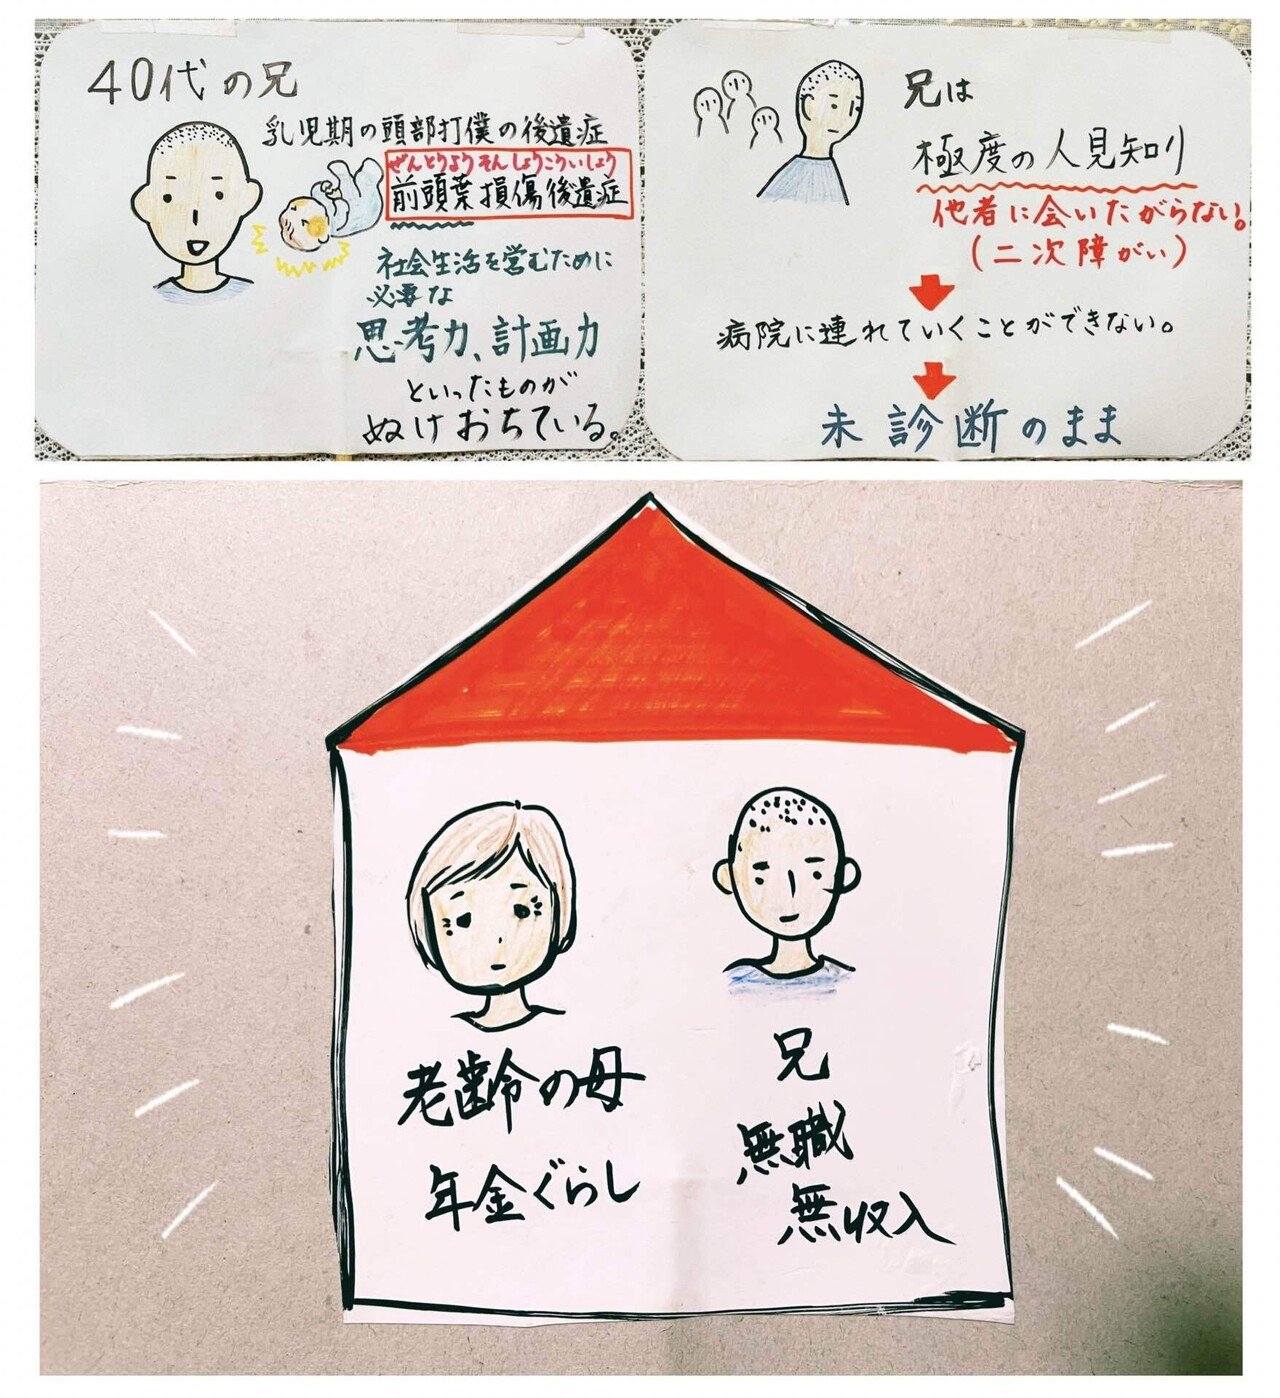 40代の兄
乳児期の頭部打僕の後遺症
ぜんとうようそんしょうこういしょう
前頭葉損傷後遺症
社会生活を営むために
必要な
思考力、計画力
といったものが
ぬけおちている。
兄は
極度の人見知り
他者に会いたがらない。
(二次障がい)
病院に連れていくことができない。
未診断のまま
老齢の母
年金ぐらし
兄
無職
無収入